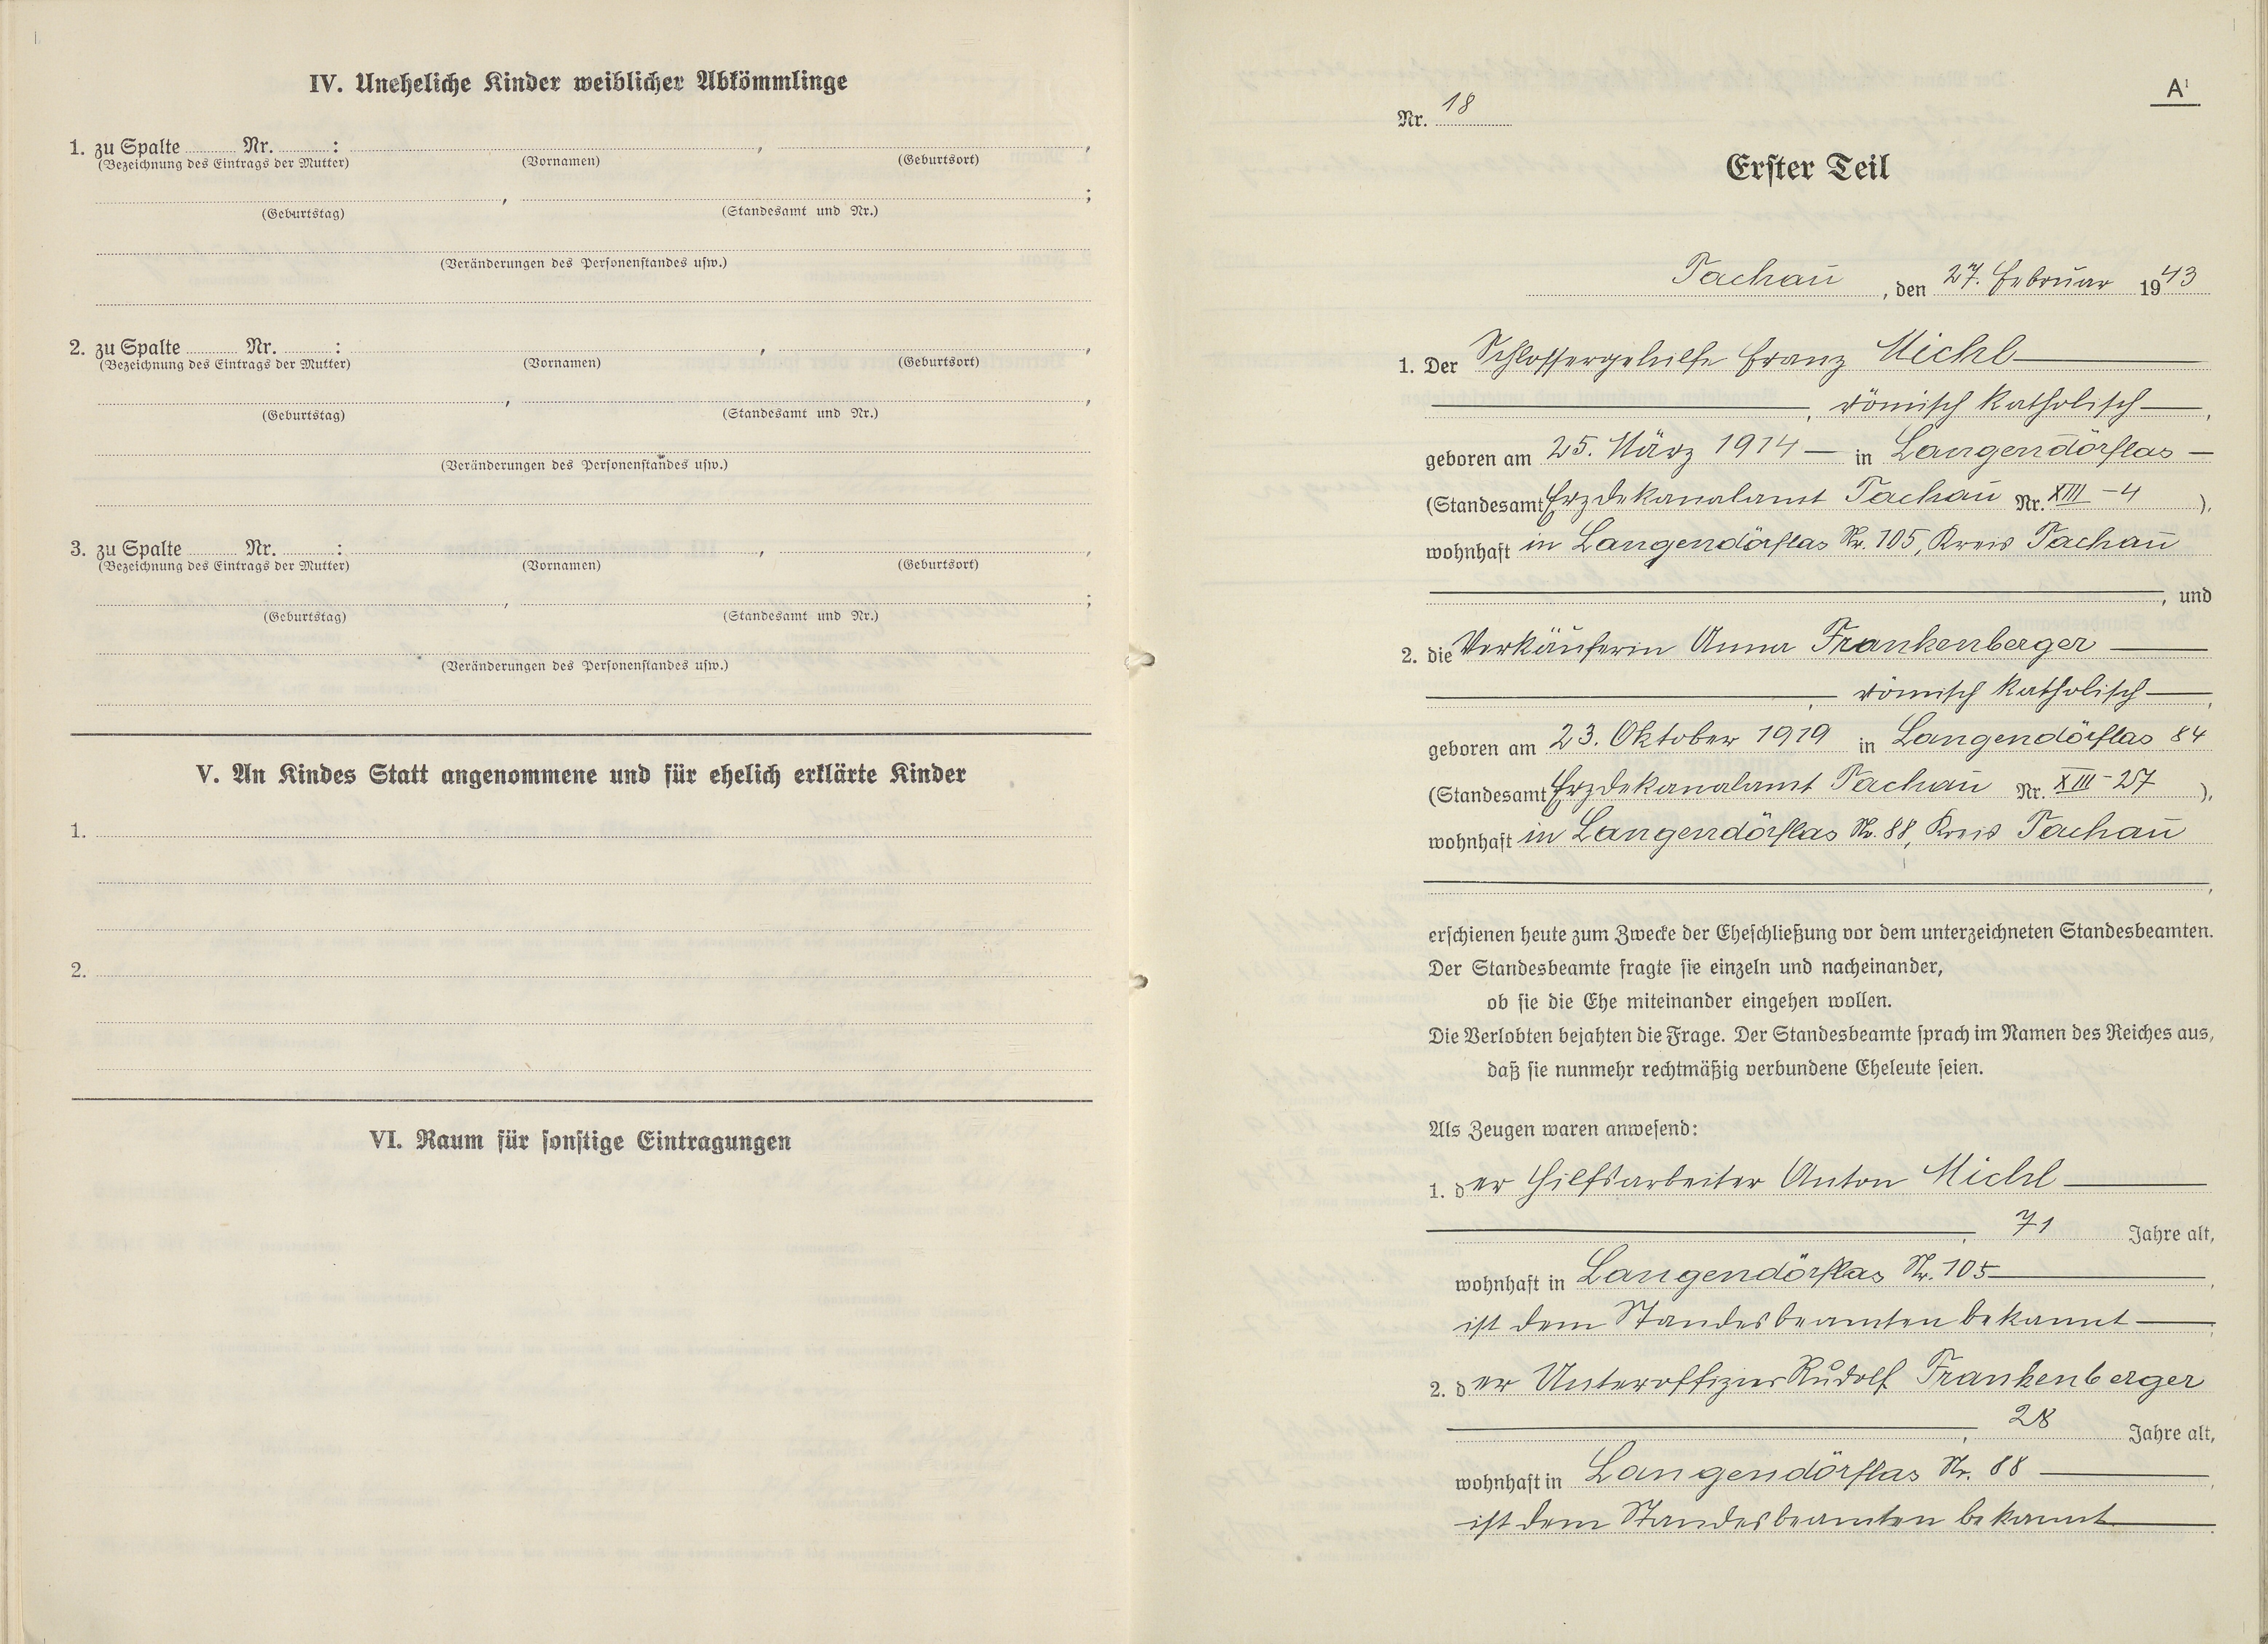 IV. Uneheliche Kinder weiblicher Abkömmlinge
1. zu Spalte Nr. : , ,
(Bezeichnung des Eintrags der Mutter) (Vornamen) (Geburtsort)
, ;
(Geburtstag) (Standesamt und Nr.)
(Veränderungen des Personenstandes usw.)
2. zu Spalte Nr. : , ,
(Bezeichnung des Eintrags der Mutter) (Vornamen) (Geburtsort)
, ,
(Geburtstag) (Standesamt und Nr.)
(Veränderungen des Personenstandes usw.)
3. zu Spalte Nr. : , ,
(Bezeichnung des Eintrags der Mutter) (Vornamen) (Geburtsort)
, ;
(Geburtstag) (Standesamt und Nr.)
(Veränderungen des Personenstandes usw.)
V. An Kindes Statt angenommene und für ehelich erklärte Kinder
1.
2.
VI. Raum für sonstige Eintragungen
A¹
Nr. 18
Erster Teil
Tachau, den 27. Februar 1943
1. Der Schlossergehilfe Franz Michl
, römisch katholisch,
geboren am 25. März 1914 in Langendörflas
(Standesamt Erzdekanalamt Tachau Nr. XIII-4),
wohnhaft in Langendörflas Nr. 105, Kreis Tachau
, und
2. die Verkäuferin Anna Frankenberger
, römisch katholisch,
geboren am 23. Oktober 1919 in Langendörflas 84
(Standesamt Erzdekanalamt Tachau Nr. XIII-27),
wohnhaft in Langendörflas Nr. 88, Kreis Tachau
,
erschienen heute zum Zwecke der Eheschließung vor dem unterzeichneten Standesbeamten.
Der Standesbeamte fragte sie einzeln und nacheinander,
ob sie die Ehe miteinander eingehen wollen.
Die Verlobten bejahten die Frage. Der Standesbeamte sprach im Namen des Reiches aus,
daß sie nunmehr rechtmäßig verbundene Eheleute seien.
Als Zeugen waren anwesend:
1. der Hilfsarbeiter Anton Michl
, 71 Jahre alt,
wohnhaft in Langendörflas Nr. 105,
ist dem Standesbeamten bekannt;
2. der Unteroffizier Rudolf Frankenberger
, 28 Jahre alt,
wohnhaft in Langendörflas Nr. 88,
ist dem Standesbeamten bekannt.